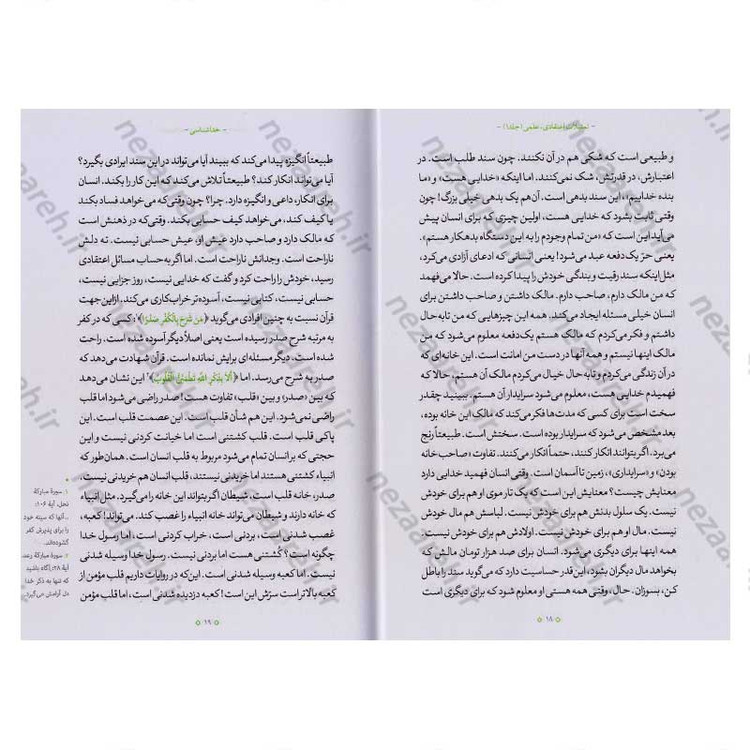 - مشکلات اعتقادی، علمی (جلد۱) -
و طبیعی است که شکی هم در آن نکنند. چون سند طلب است. در
اعتبارش، در قدرتش، شک نمی‌کنند. اما اینکه «خدایی هست» و «ما
بنده خداییم»، این سند بدهی است. آن‌هم یک بدهی خیلی بزرگ! چون
وقتی ثابت بشود که خدایی هست، اولین چیزی که برای انسان پیش
می‌آید این است که «من تمام وجودم را به این دستگاه بدهکار هستم».
یعنی حرّ یک‌دفعه عبد می‌شود! یعنی انسانی که ادعای آزادی می‌کرد،
مثل اینکه سند رقیت و بندگی خودش را پیدا کرده است. حالا می‌فهمد
که من مالک دارم، صاحب دارم. مالک داشتن و صاحب داشتن برای
انسان خیلی مسئله ایجاد می‌کند. همه این چیزهایی که من تا به حال
داشتم و فکر می‌کردم که مالک هستم یک‌دفعه معلوم می‌شود که من
مالک اینها نیستم و همه آنها در دست من امانت است. این خانه‌ای که
در آن زندگی می‌کردم و تابه حال خیال می‌کردم مالک آن هستم، حالا که
فهمیدم خدایی هست، معلوم می‌شود سرایدار آن هستم. ببینید چقدر
سخت است برای کسی که مدت‌ها فکر می‌کند که مالک این خانه بوده،
بعد مشخص می‌شود که سرایدار بوده است. سختش است. طبیعتاً رنج
می‌برد. اگر بتوانند انکار کنند، حتماً انکار می‌کنند. تفاوت «صاحب خانه
بودن» و «سرایداری»، زمین تا آسمان است. وقتی انسان فهمید خدایی دارد
معنایش چیست؟ معنایش این است که یک تار موی او هم برای خودش
نیست. یک سلول بدنش هم برای خودش نیست. لباسش هم مال خودش
نیست. مال او هم برای خودش نیست. اولادش هم برای خودش نیست.
همه اینها برای دیگری می‌شود. انسان برای صد هزار تومان مالش که
بخواهد مال دیگران بشود، این‌قدر حساسیت دارد که می‌گوید سند را باطل
کن، بسوزان. حال، وقتی همه هستی او معلوم شود که برای دیگری است
۱۸
- خداشناسی -
طبیعتاً انگیزه پیدا می‌کند که ببیند آیا می‌تواند در این سند ایرادی بگیرد؟
آیا می‌تواند انکار کند؟ طبیعتاً تلاش می‌کند که این کار را بکند. انسان
برای انکار، داعی و انگیزه دارد. چرا؟ چون وقتی‌که می‌خواهد فساد بکند
یا کیف کند، می‌خواهد کیف حسابی بکند. وقتی‌که در ذهنش است
که مالک دارد و صاحب دارد عیش او، عیش حسابی نیست. ته دلش
ناراحت است. وجدانش ناراحت است. اما اگر به حساب مسائل اعتقادی
رسید، خودش را راحت کرد و گفت که خدایی نیست، روز جزایی نیست،
حسابی نیست، کتابی نیست، آسوده‌تر خراب‌کاری می‌کند. ازاین‌جهت
قرآن نسبت به چنین افرادی می‌گوید ﴿مَن شَرَحَ بِالْكُفْرِ صَدْرًا﴾؛ کسی که در کفر
به مرتبه شرح صدر رسیده است یعنی اصلاً دیگر آسوده شده است. راحت
شده است، دیگر مسئله‌ای برایش نمانده است. قرآن شهادت می‌دهد که
صدر به شرح می‌رسد. اما ﴿أَلَا بِذِكْرِ اللَّهِ تَطْمَئِنُّ الْقُلُوبُ﴾ این نشان می‌دهد
که بین «صدر» و بین «قلب» تفاوت هست! صدر راضی می‌شود اما قلب
راضی نمی‌شود. این هم شأن قلب است. این عصمت قلب است. این
پاکی قلب است. قلب کشتنی است اما خیانت کردنی نیست و این
حجتی که بر انسان تمام می‌شود مربوط به قلب انسان است. همان‌طور که
انبیاء کشتنی هستند اما خریدنی نیستند، قلب انسان هم خریدنی نیست.
صدر، خانه قلب است، شیطان اگر بتواند این خانه را می‌گیرد. مثل انبیاء
که خانه دارند و شیطان می‌تواند خانه انبیاء را غصب کند. آن‌وقت، کعبه،
غصب شدنی است، بردنی است، خراب کردنی است، اما رسول خدا
چگونه است؟ کُشتنی هست اما بردنی نیست. رسول خدا وسیله شدنی
نیست، اما کعبه وسیله شدنی است. این‌که در روایات داریم قلب مؤمن از
کعبه بالاتر است سرّش این است! کعبه دزدیده شدنی است، اما قلب مؤمن
۱. سورهٔ مبارکهٔ
نحل، آیهٔ ۱۰۶:
...آنها که سینه خود
را برای پذیرش کفر
گشوده‌اند.
۲. سورهٔ مبارکهٔ رعد،
آیهٔ ۲۸: آگاه باشید
که تنها به ذکر خدا
دل آرامش می‌گیرد.
۱۹
nezaareh.ir